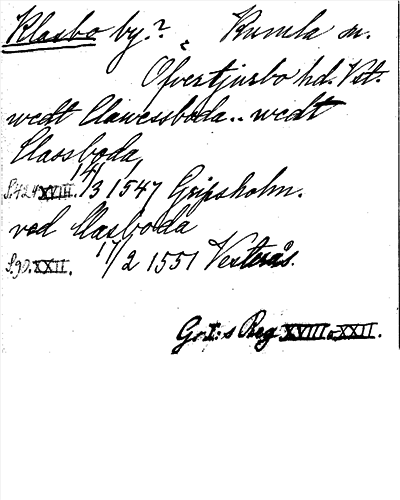 Klasbo by.? Kumla sn.
Öfvertjurbo hd. Vstm.
wedt Clawessboda.. wedt
Classboda
S.424 XVIII. 14/3 1547 Gripsholm.
ved Clasboda
S.90. XXII. 17/2 1551 Vesterås.
G. I:s Reg XVIII o. XXII.